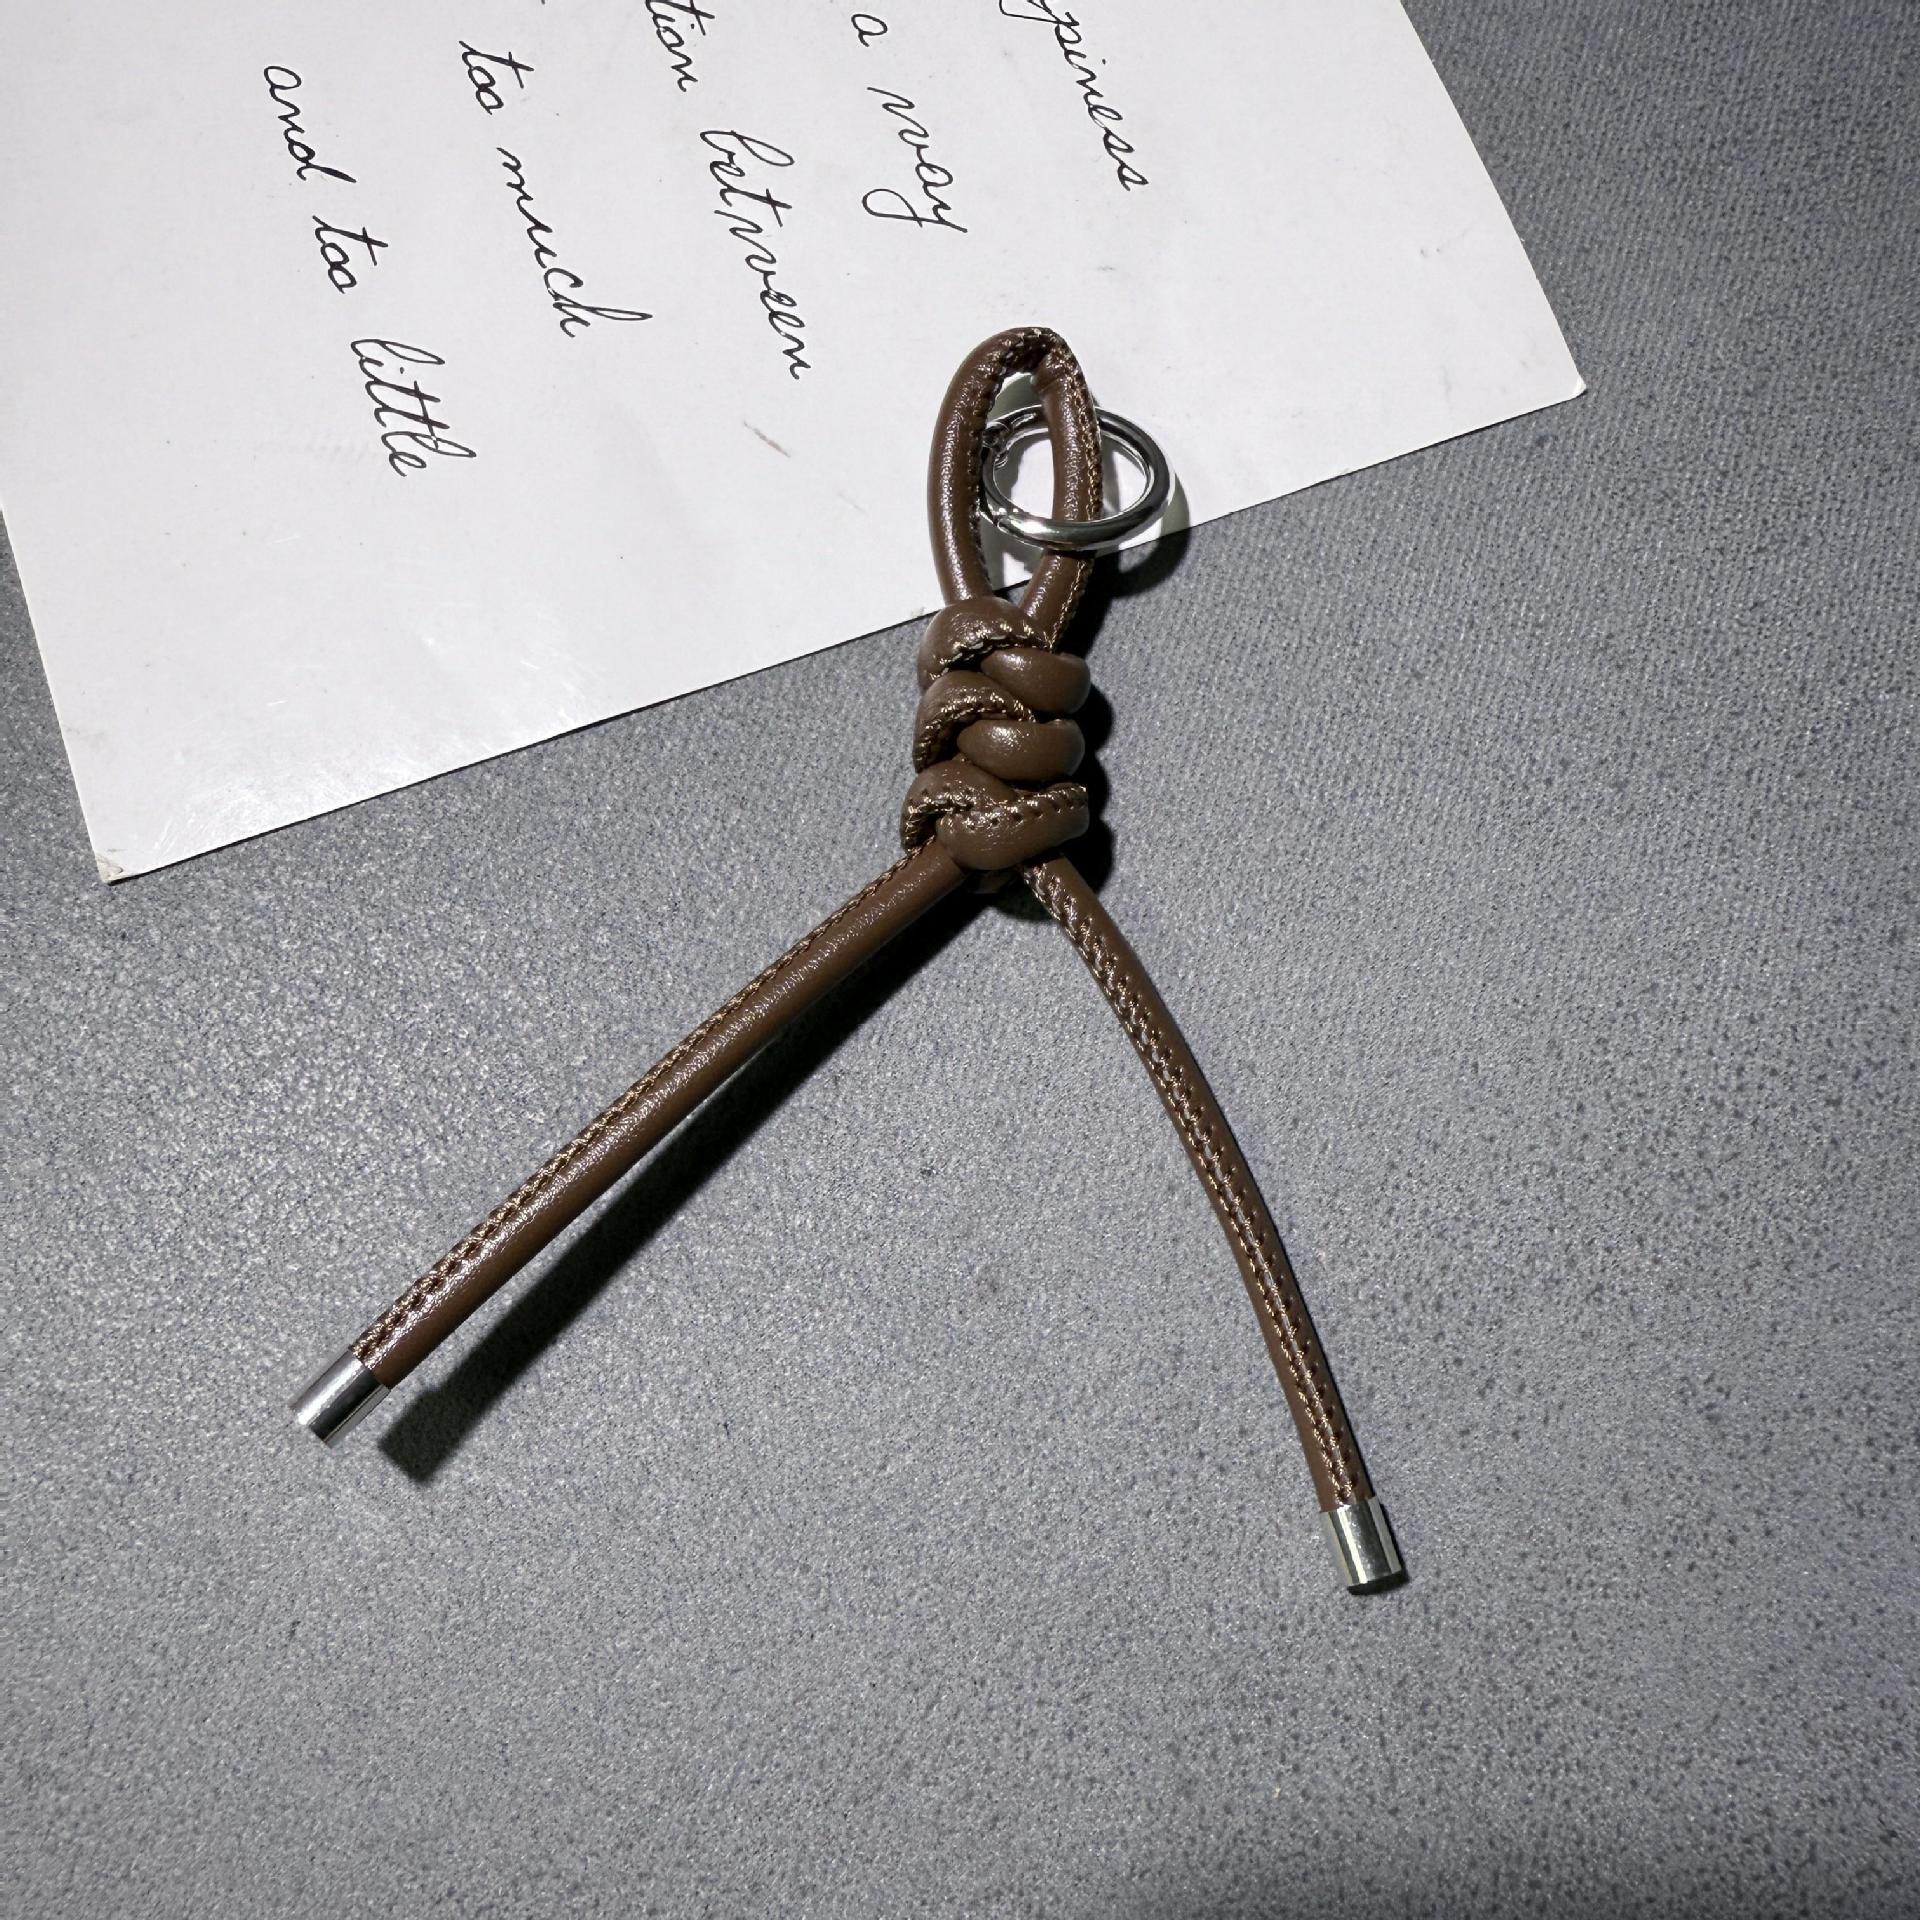 ppiness
a way
tion between
too much
and too little